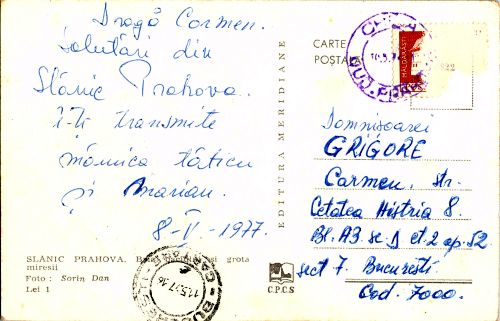 Dragă Carmen.
Salutări din
Slănic Prahova.
Ți-ți transmite
mămica tăticu
și Marian.
8-V-1977.
SLĂNIC PRAHOVA.
și grota
miresii
Foto: Sorin Dan
Lei 1
EDITURA MERIDIANE
C.P.C.S
CARTE
POȘTA
MĂLDĂRĂȘTI
Domnișoarei
GRIGORE
Carmen. str.
Cetatea Histria 8.
Bl. A3. sc. D et. 2 ap. 52
sect 7. București
Cod. 7000.